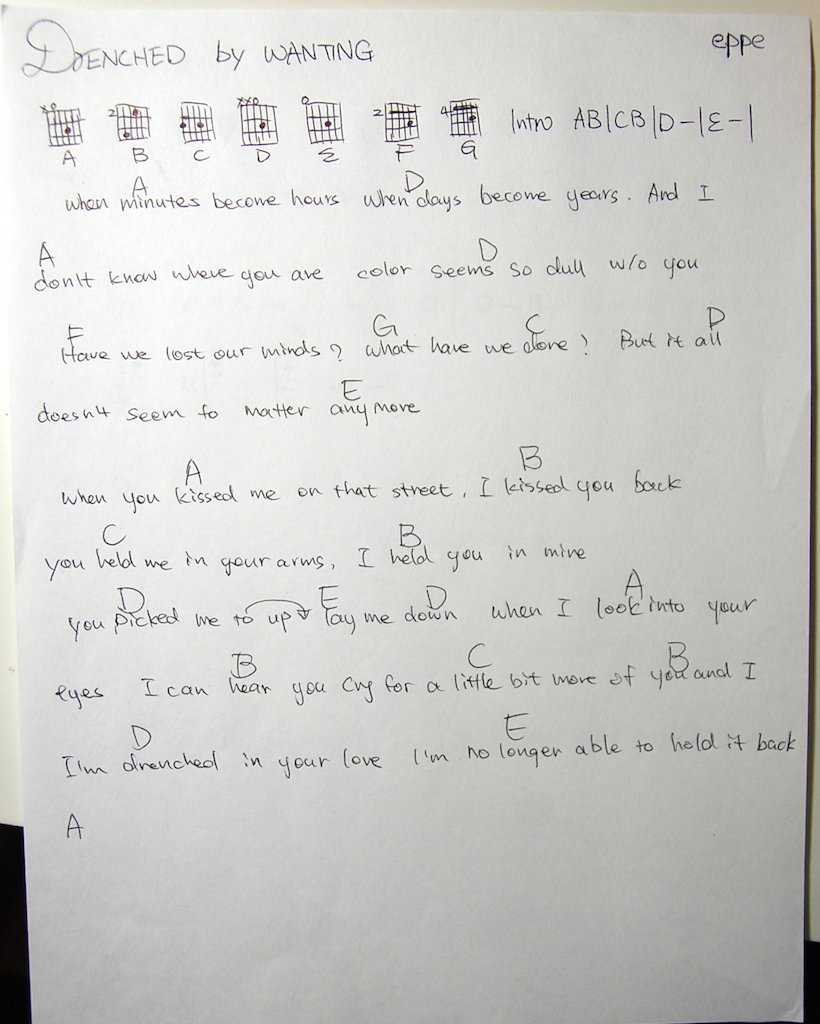 DRENCHED by WANTING eppe
xo 2 xxo o 2 4 Intro AB|CB|D-|E-|
A B C D E F G
A D
when minutes become hours when days become years. And I
A D
don't know where you are color seems so dull w/o you
F G C D
Have we lost our minds? what have we done? But it all
E
doesn't seem to matter anymore
A B
when you kissed me on that street, I kissed you back
C B
you held me in your arms, I held you in mine
D E D A
you picked me to up lay me down when I look into your
B C B
eyes I can hear you cry for a little bit more of you and I
D E
I'm drenched in your love I'm no longer able to hold it back
A